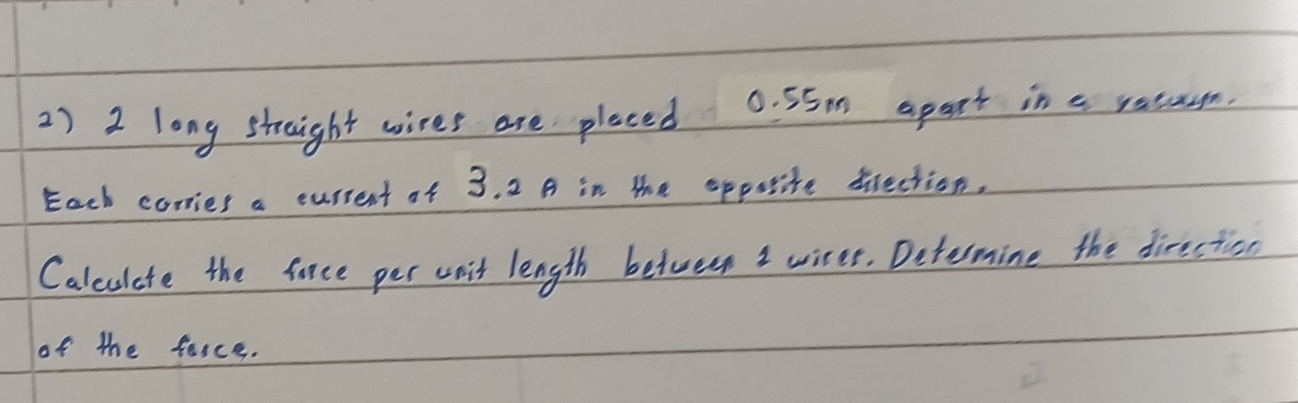 2) 2 long straight wires are placed 0.55m apart in a vacuum.
Each carries a current of 3.2 A in the opposite direction.
Calculate the force per unit length between 2 wires. Determine the direction
of the force.